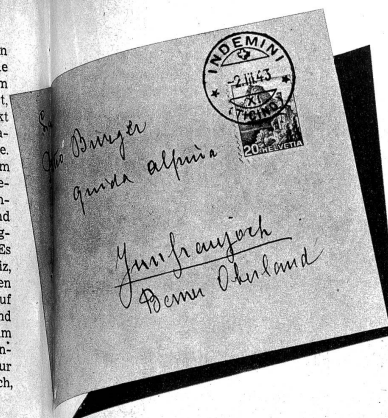 n
e
m
t,
kt
n-
e.
m
e-
n-
nd
g-
Es
iz,
en
uf
nd
im
n-
ur
ch,
INDEMINI
-2.III.43
XI
(TICINO)
20 HELVETIA
Burger
guida alpina
Jungfraujoch
Berner Oberland